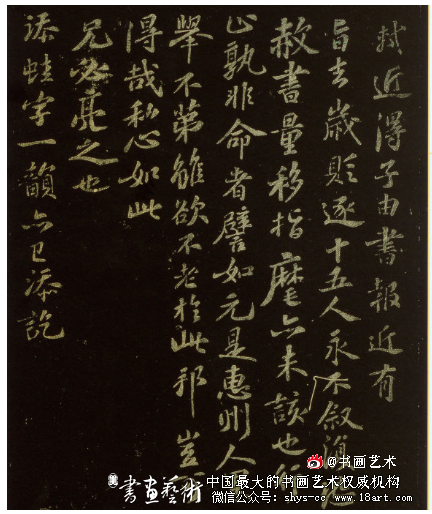 軾近得子由書報近有
旨去歲貶逐十五人永不叙
赦書量移指麾亦未該也
止孰非命者譬如元是惠州人
舉不第雖欲不老於此邦豈
得哉私心如此
兄必亮之也
添蛙字一韻亦已添訖
@书画艺术
書画藝術
中国最大的书画艺术权威机构
微信公众号：shys-cc www.18art.com